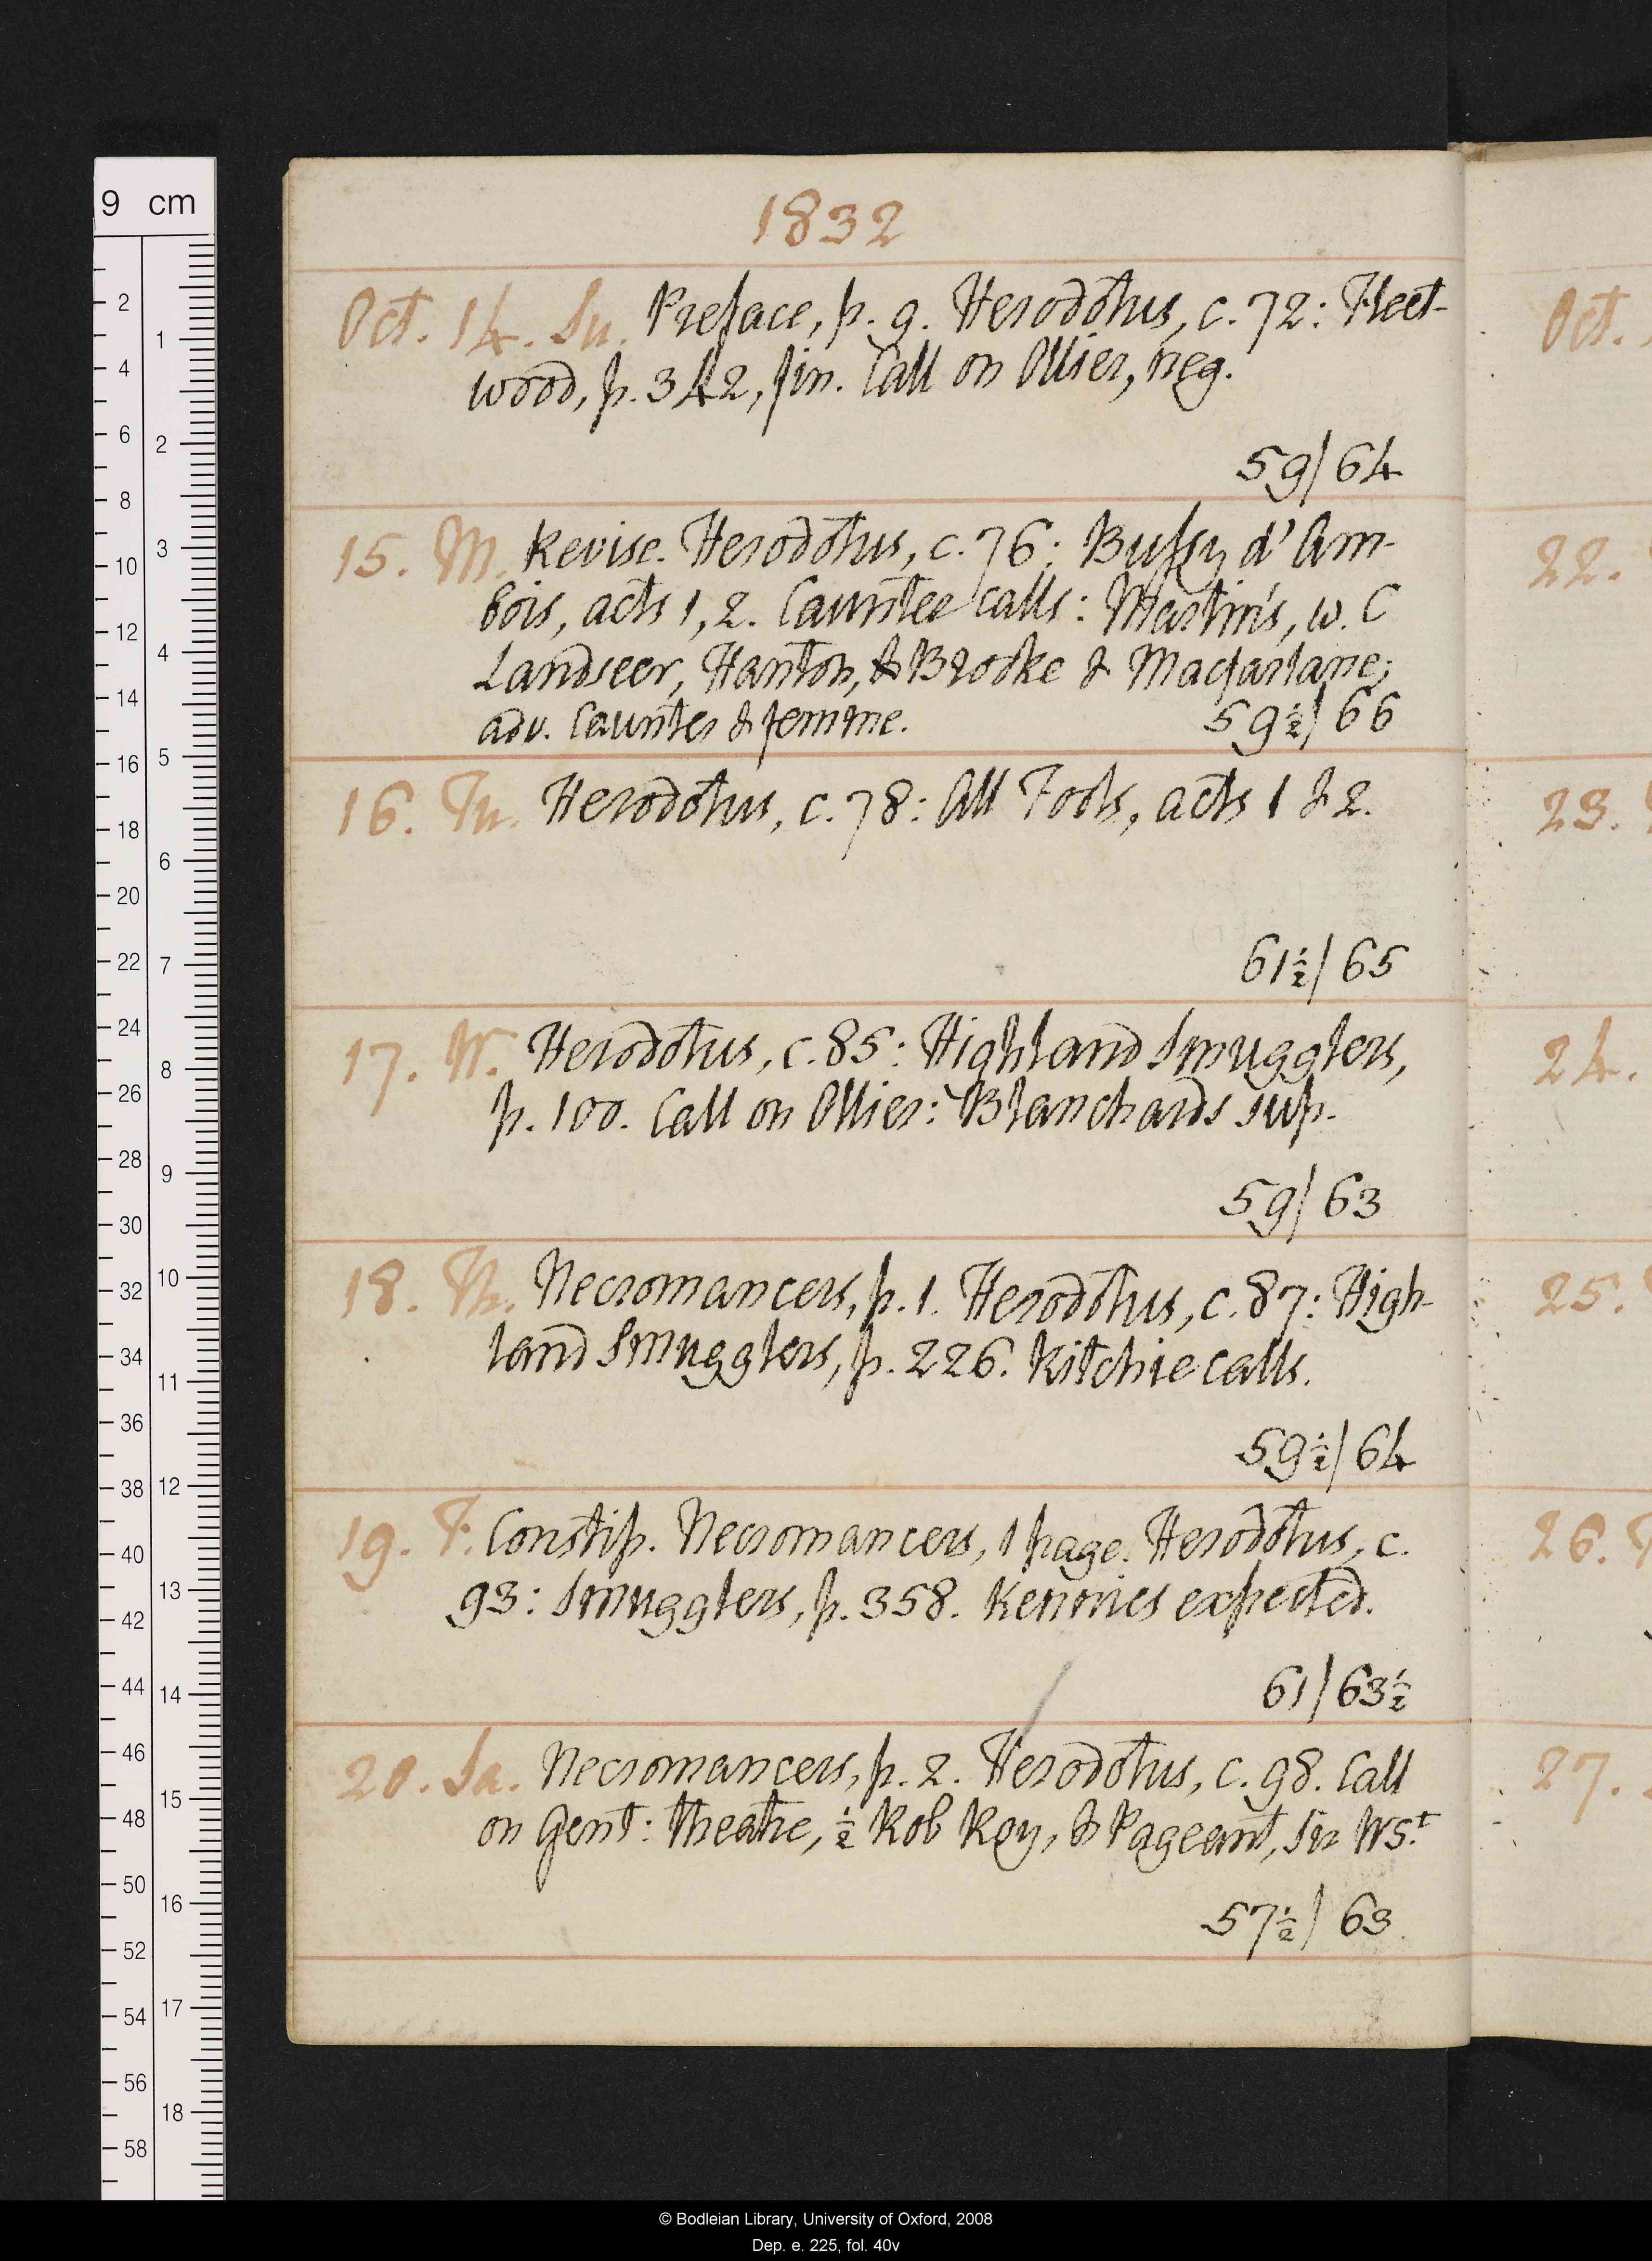 9 cm
1832
Oct. 14. Su. Preface, p. 9. Herodotus, c. 72: Fleet-
wood, p. 342, fin. Call on Ollier, neg.
59/64
15. M. Revise. Herodotus, c. 76: Bussy d'Am-
bois, acts 1, 2. Caunter calls: Martin's, w. C
Landseer, Hanton, & Brooke & Macfarlane;
adv. Caunter & femme. 59½/66
16. Tu. Herodotus, c. 78: All Fools, acts 1 & 2.
61½/65
17. W. Herodotus, c. 85: Highland Smugglers,
p. 100. Call on Ollier: Blanchards sup.
59/63
18. Th. Necromancers, p. 1. Herodotus, c. 87: High-
land Smugglers, p. 226. Ritchie calls.
59½/64
19. F. Constip. Necromancers, 1 page. Herodotus, c.
93: Smugglers, p. 358. Kennies expected.
61/63½
20. Sa. Necromancers, p. 2. Herodotus, c. 98. Call
on Gent: theatre, ½ Rob Roy, & Pageant, Sir WS.t
57½/63
Oct.
22.
23.
24.
25.
26.
27.
© Bodleian Library, University of Oxford, 2008
Dep. e. 225, fol. 40v